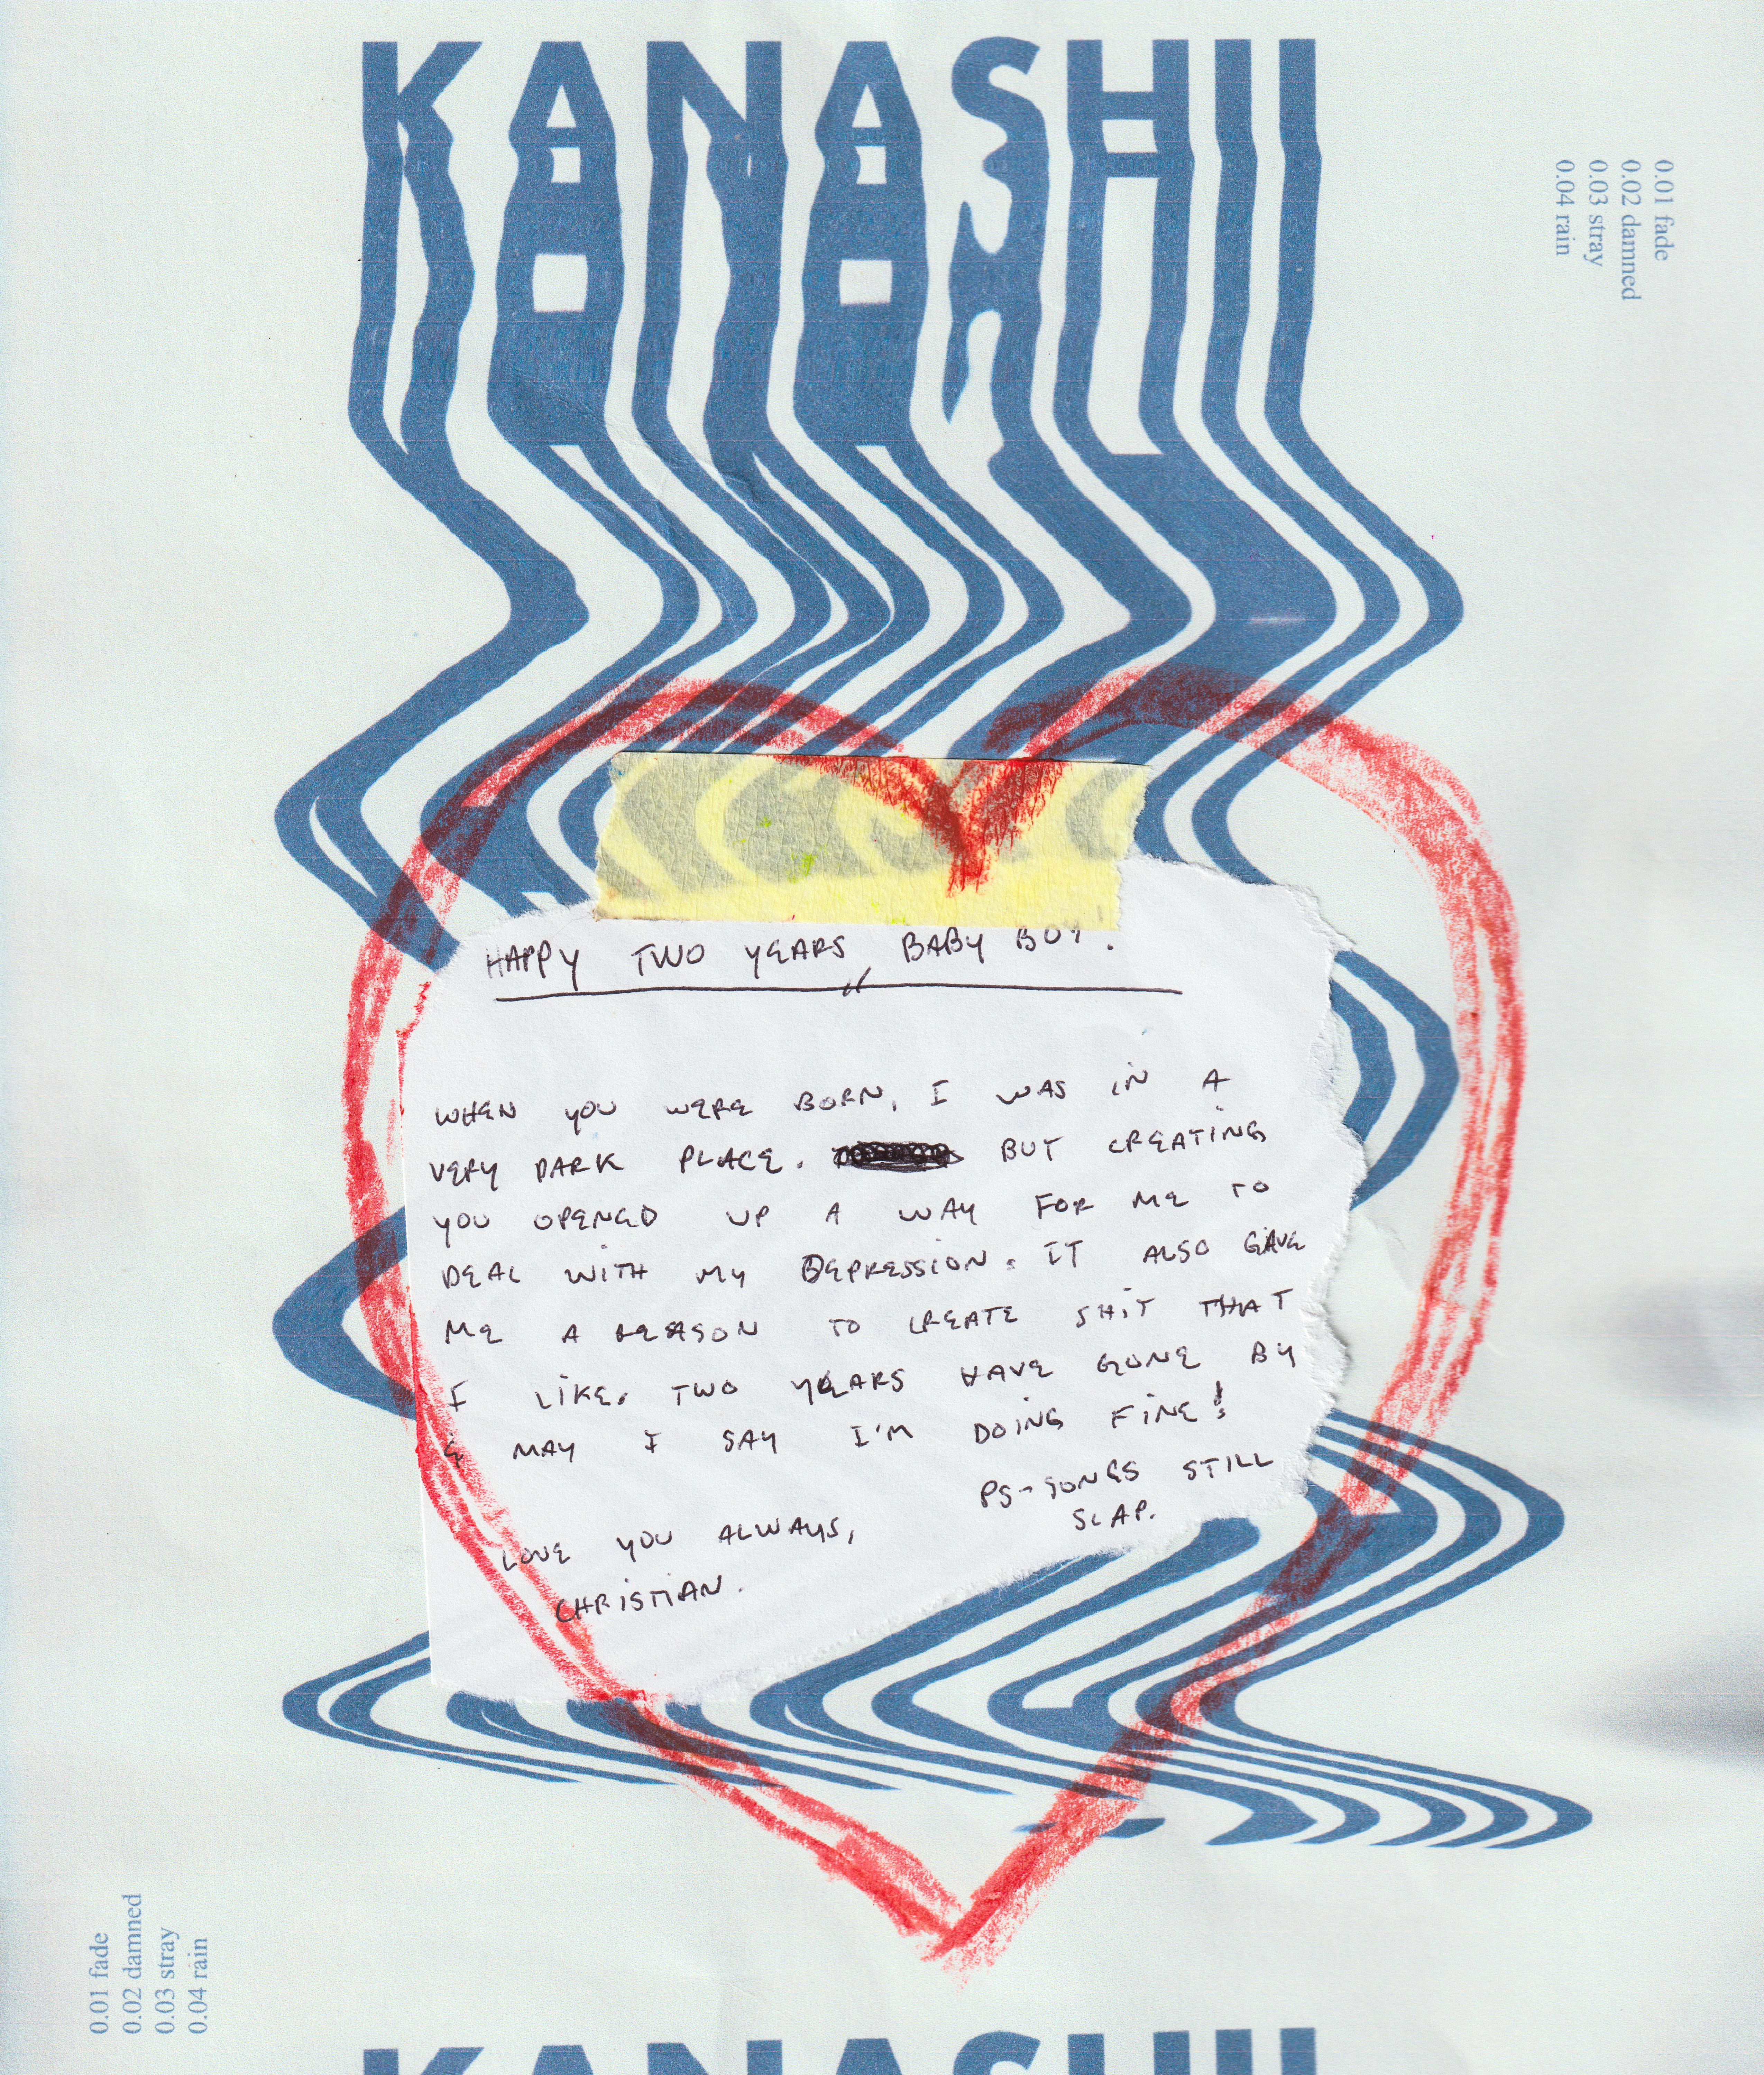 KANASHII
0.01 fade
0.02 damned
0.03 stray
0.04 rain
HAPPY TWO YEARS BABY BOY!
WHEN YOU WERE BORN, I WAS IN A
VERY DARK PLACE. BUT CREATING
YOU OPENED UP A WAY FOR ME TO
DEAL WITH MY DEPRESSION. IT ALSO GAVE
ME A REASON TO CREATE SHIT THAT
I LIKE. TWO YEARS HAVE GONE BY
& MAY I SAY I'M DOING FINE!
PS-SONGS STILL
SLAP.
LOVE YOU ALWAYS,
CHRISTIAN.
0.01 fade
0.02 damned
0.03 stray
0.04 rain
KANASHII